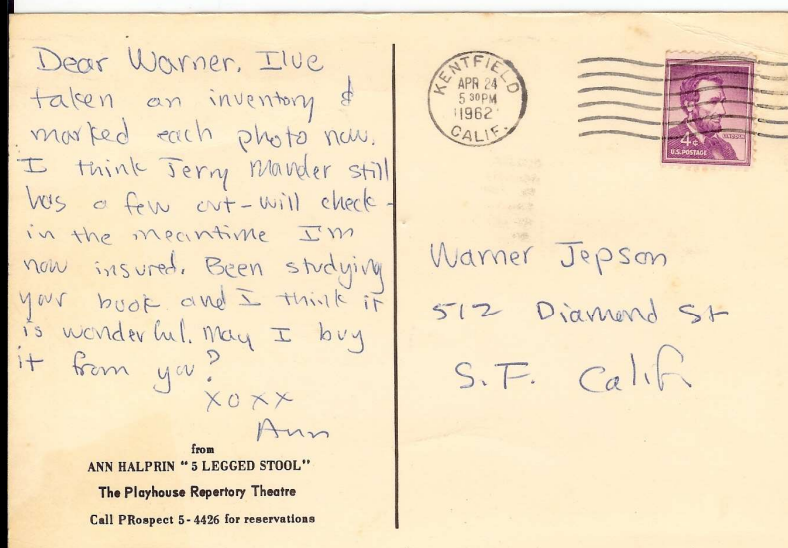 Dear Warner, I've
taken an inventory &
marked each photo now.
I think Jerry Mander still
has a few out - will check -
in the meantime I'm
now insured. Been studying
your book and I think it
is wonderful. May I buy
it from you?
XOXX
Ann
from
ANN HALPRIN "5 LEGGED STOOL"
The Playhouse Repertory Theatre
Call PRospect 5-4426 for reservations
KENTFIELD
APR 24
5 30 PM
1962
CALIF.
4¢
U.S. POSTAGE
Warner Jepson
512 Diamond St
S.F. Calif